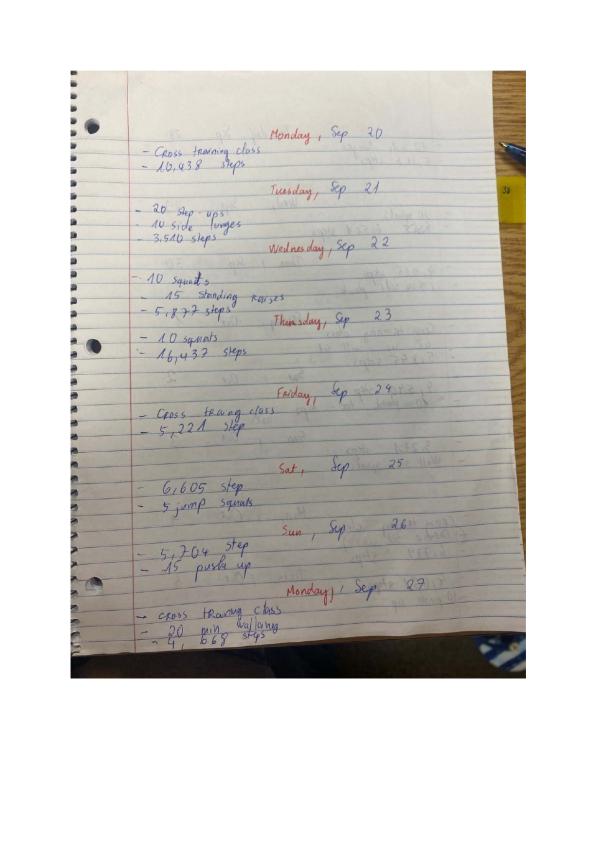 Monday, Sep 20
- Cross training class
- 10,438 steps
Tuesday, Sep 21
- 20 step-ups
- 10 side lunges
- 3.510 steps
Wednesday, Sep 22
- 10 squats
- 15 standing raises
- 5,877 steps
Thursday, Sep 23
- 10 squats
- 16,437 steps
Friday, Sep 24
- Cross training class
- 5,221 step
Sat, Sep 25
- 6,605 step
- 5 jump squats
Sun, Sep 26
- 5,704 step
- 15 push up
Monday, Sep 27
- cross training class
- 20 min walking
- 4, 668 steps